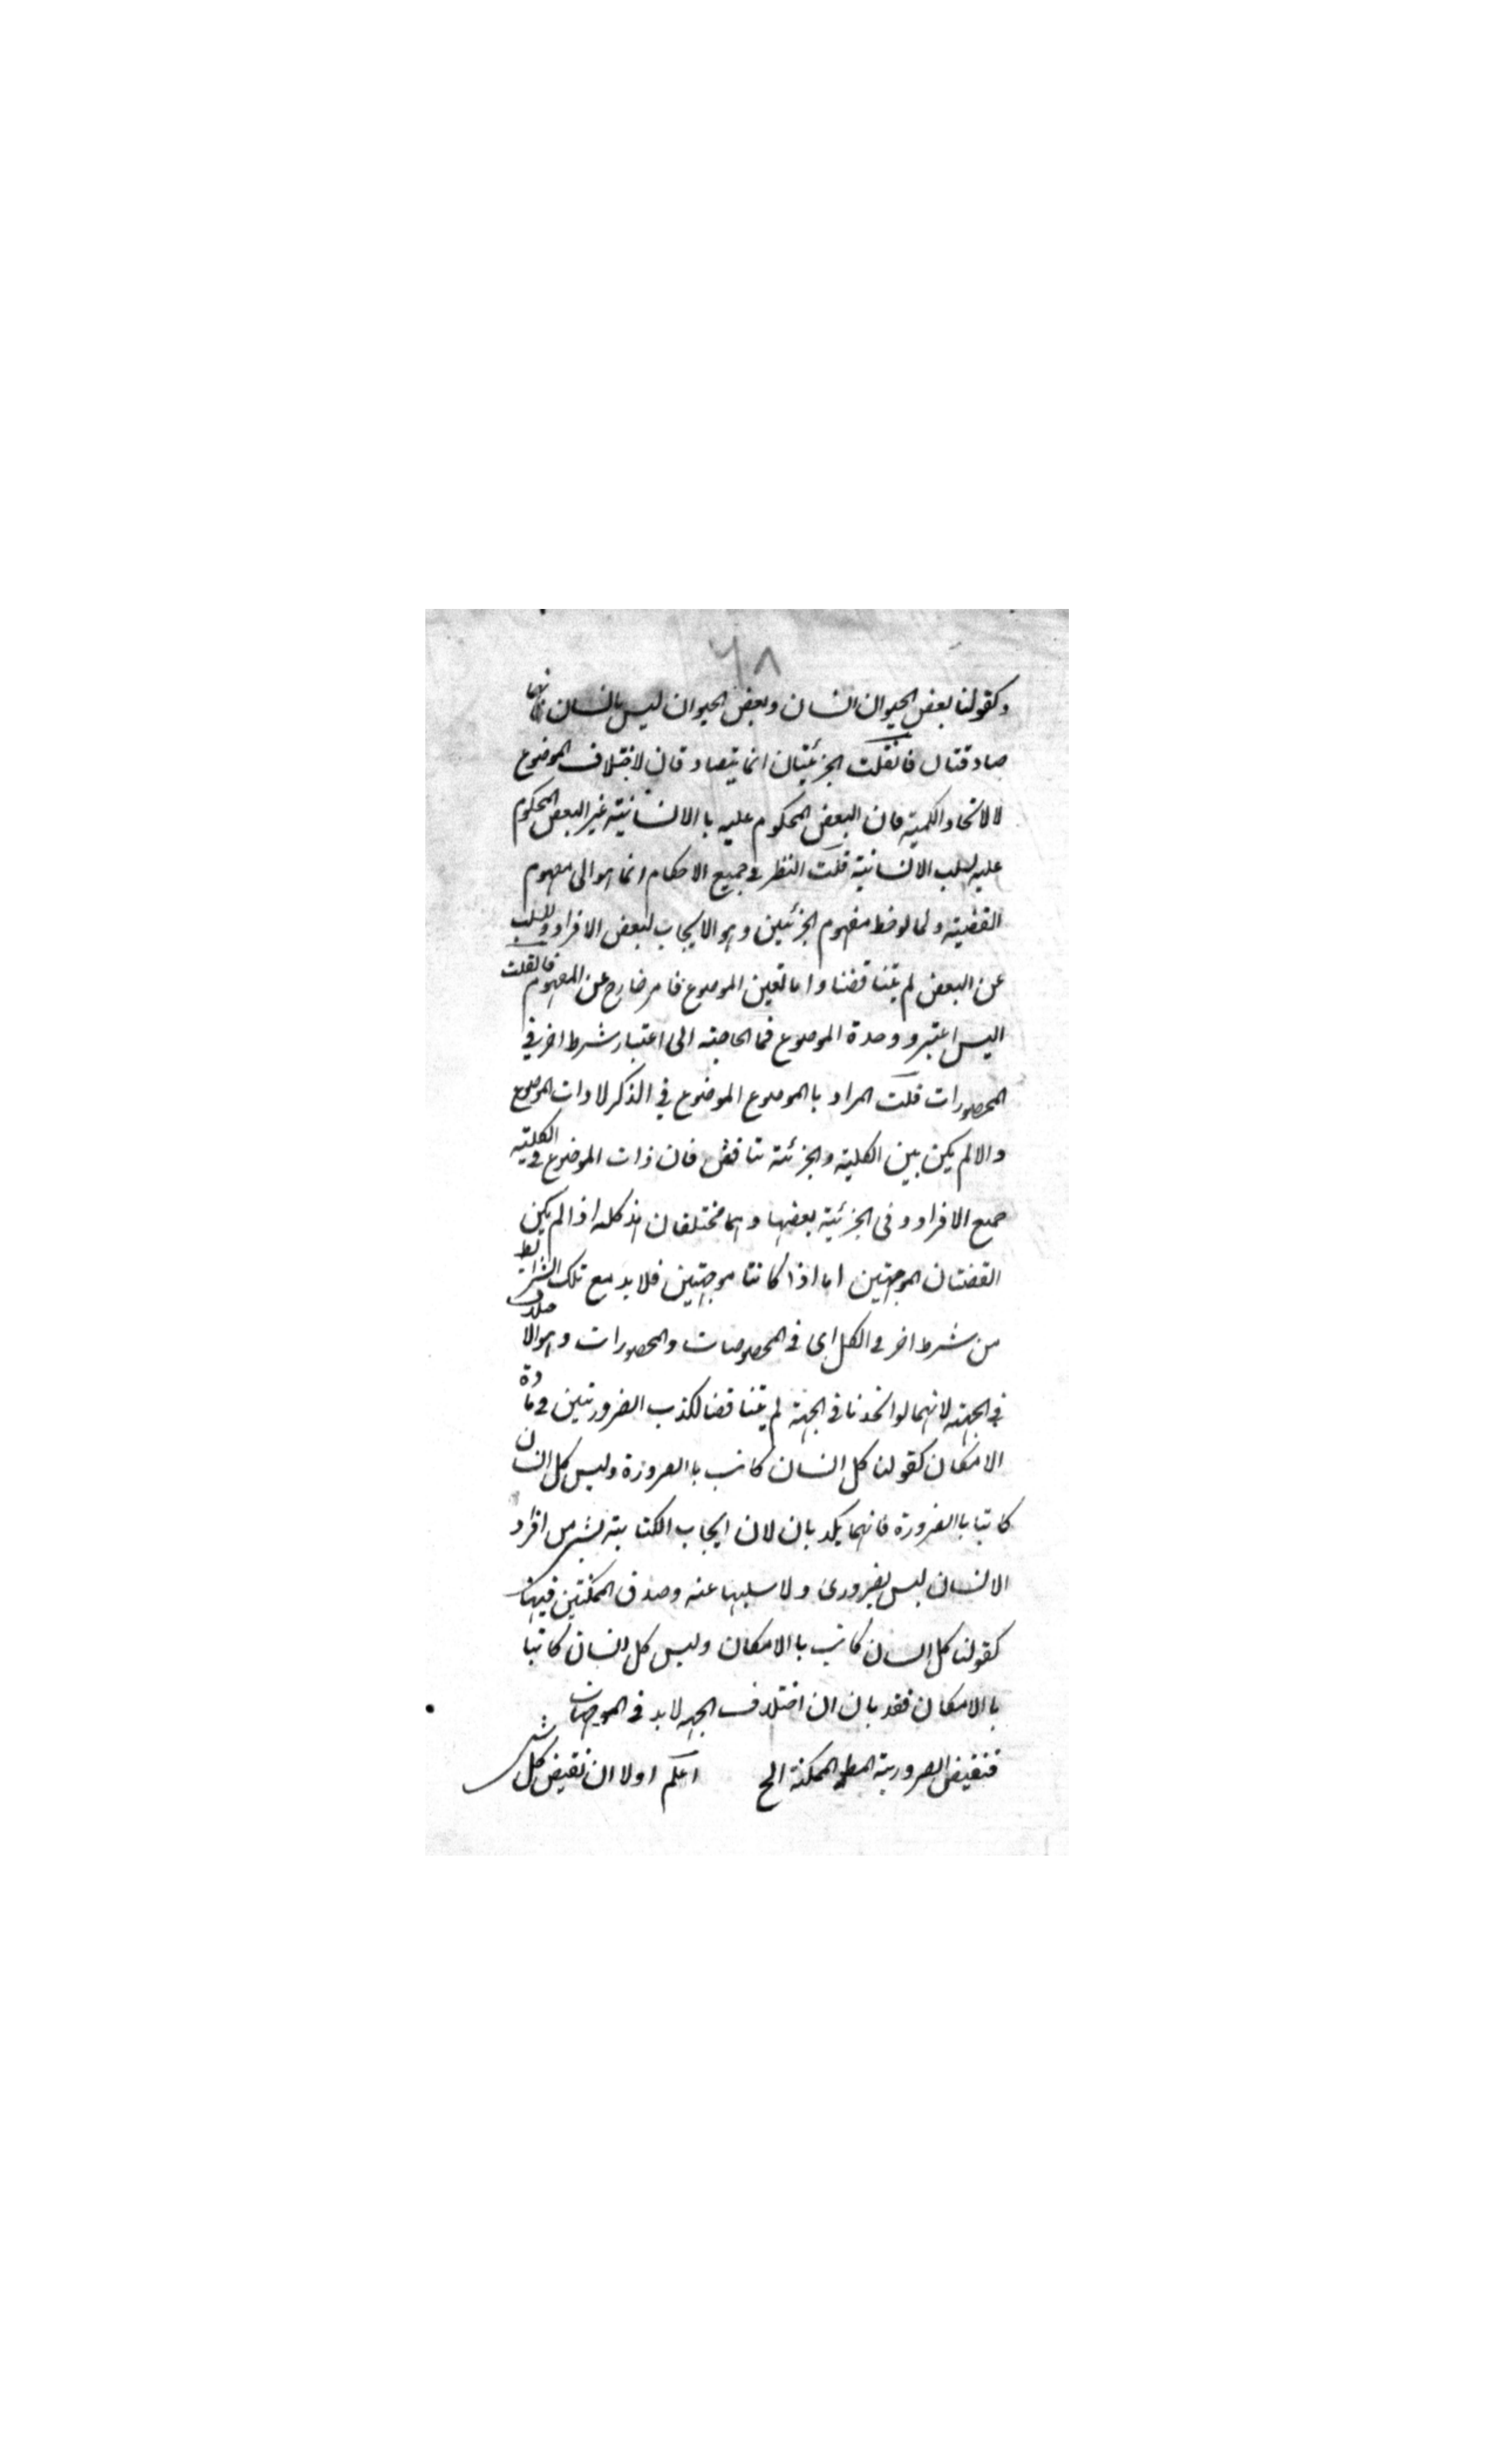 ٦٨
وكقولنا بعض الحيوان انسان وبعض الحيوان ليس بانسان فانهما
صادقتان فانقلت الجزئيتان انما يتصادقان لاختلاف الموضوع
لا لاتحاد الكمية فان البعض المحكوم عليه باالانسانية غير البعض المحكوم
عليه بسلب الانسانية قلت النظر في جميع الاحكام انما هو الى مفهوم
القضية ولما لوحظ مفهوم الجزئين وهو الايجاب لبعض الافراد والسلب
عن البعض لم يتناقضا واما تعين الموضوع فامر خارج عن المفهوم فانقلت
اليس اعتبر وحدة الموضوع فما الحاجة الى اعتبار شرط اخر في
المحصورات قلت المراد باالموضوع الموضوع في الذكر لا ذات الموضوع
والا لم يكن بين الكلية والجزئية تناقض فان ذات الموضوع في الكلية
جميع الافراد وفى الجزئية بعضها وهما مختلفان هذا كله اذا لم يكن
القضتان الموجهتين اما اذا كانتا موجهتين فلابد مع تلك الشرائط
من شرط اخر في الكل اى في المخصوصات والمحصورات وهو الاختلاف
في الجهة لانهما لو اتحدتا في الجهة لم يتناقضا لكذب الضرورتين في مادة
الامكان كقولنا كل انسان كاتب باالضرورة وليس كل انسان
كاتبا باالضرورة فانهما يكذبان لان ايجاب الكتابة لشئ من افراد
الانسان ليس بضرورى ولا سلبها عنه وصدق الممكنتين فيها
كقولنا كل انسان كاتب باالامكان وليس كل انسان كاتبا
باالامكان فقد بان ان اختلاف الجهه لابد في الموجهات
فنقيض الضرورية المطلقة الممكنة الخ اعلم اولا ان نقيض كل شئ